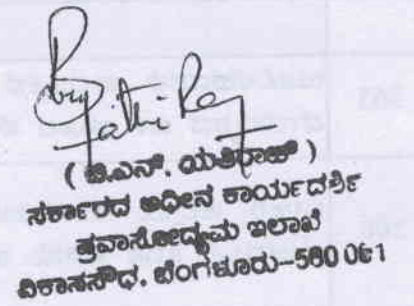 ( ಬಿ.ಎನ್. ಯತಿರಾಜ್ )
ಸರ್ಕಾರದ ಅಧೀನ ಕಾರ್ಯದರ್ಶಿ
ಪ್ರವಾಸೋದ್ಯಮ ಇಲಾಖೆ
ವಿಕಾಸಸೌಧ, ಬೆಂಗಳೂರು-560 001